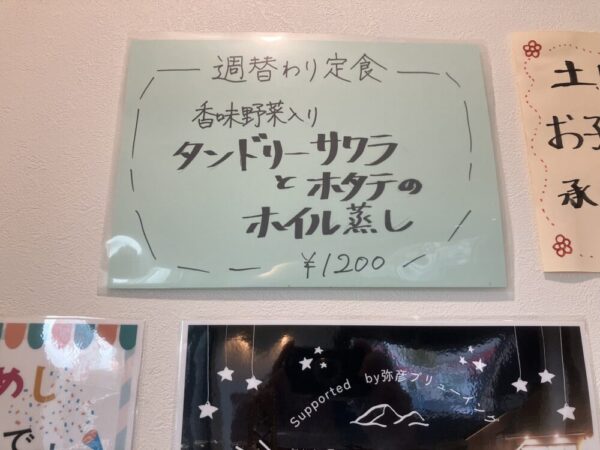 週替わり定食
香味野菜入り
タンドリーサワラ
とホタテの
ホイル蒸し
¥1200
土
お子
承
めし
で
Supported by弥彦ブリューイング